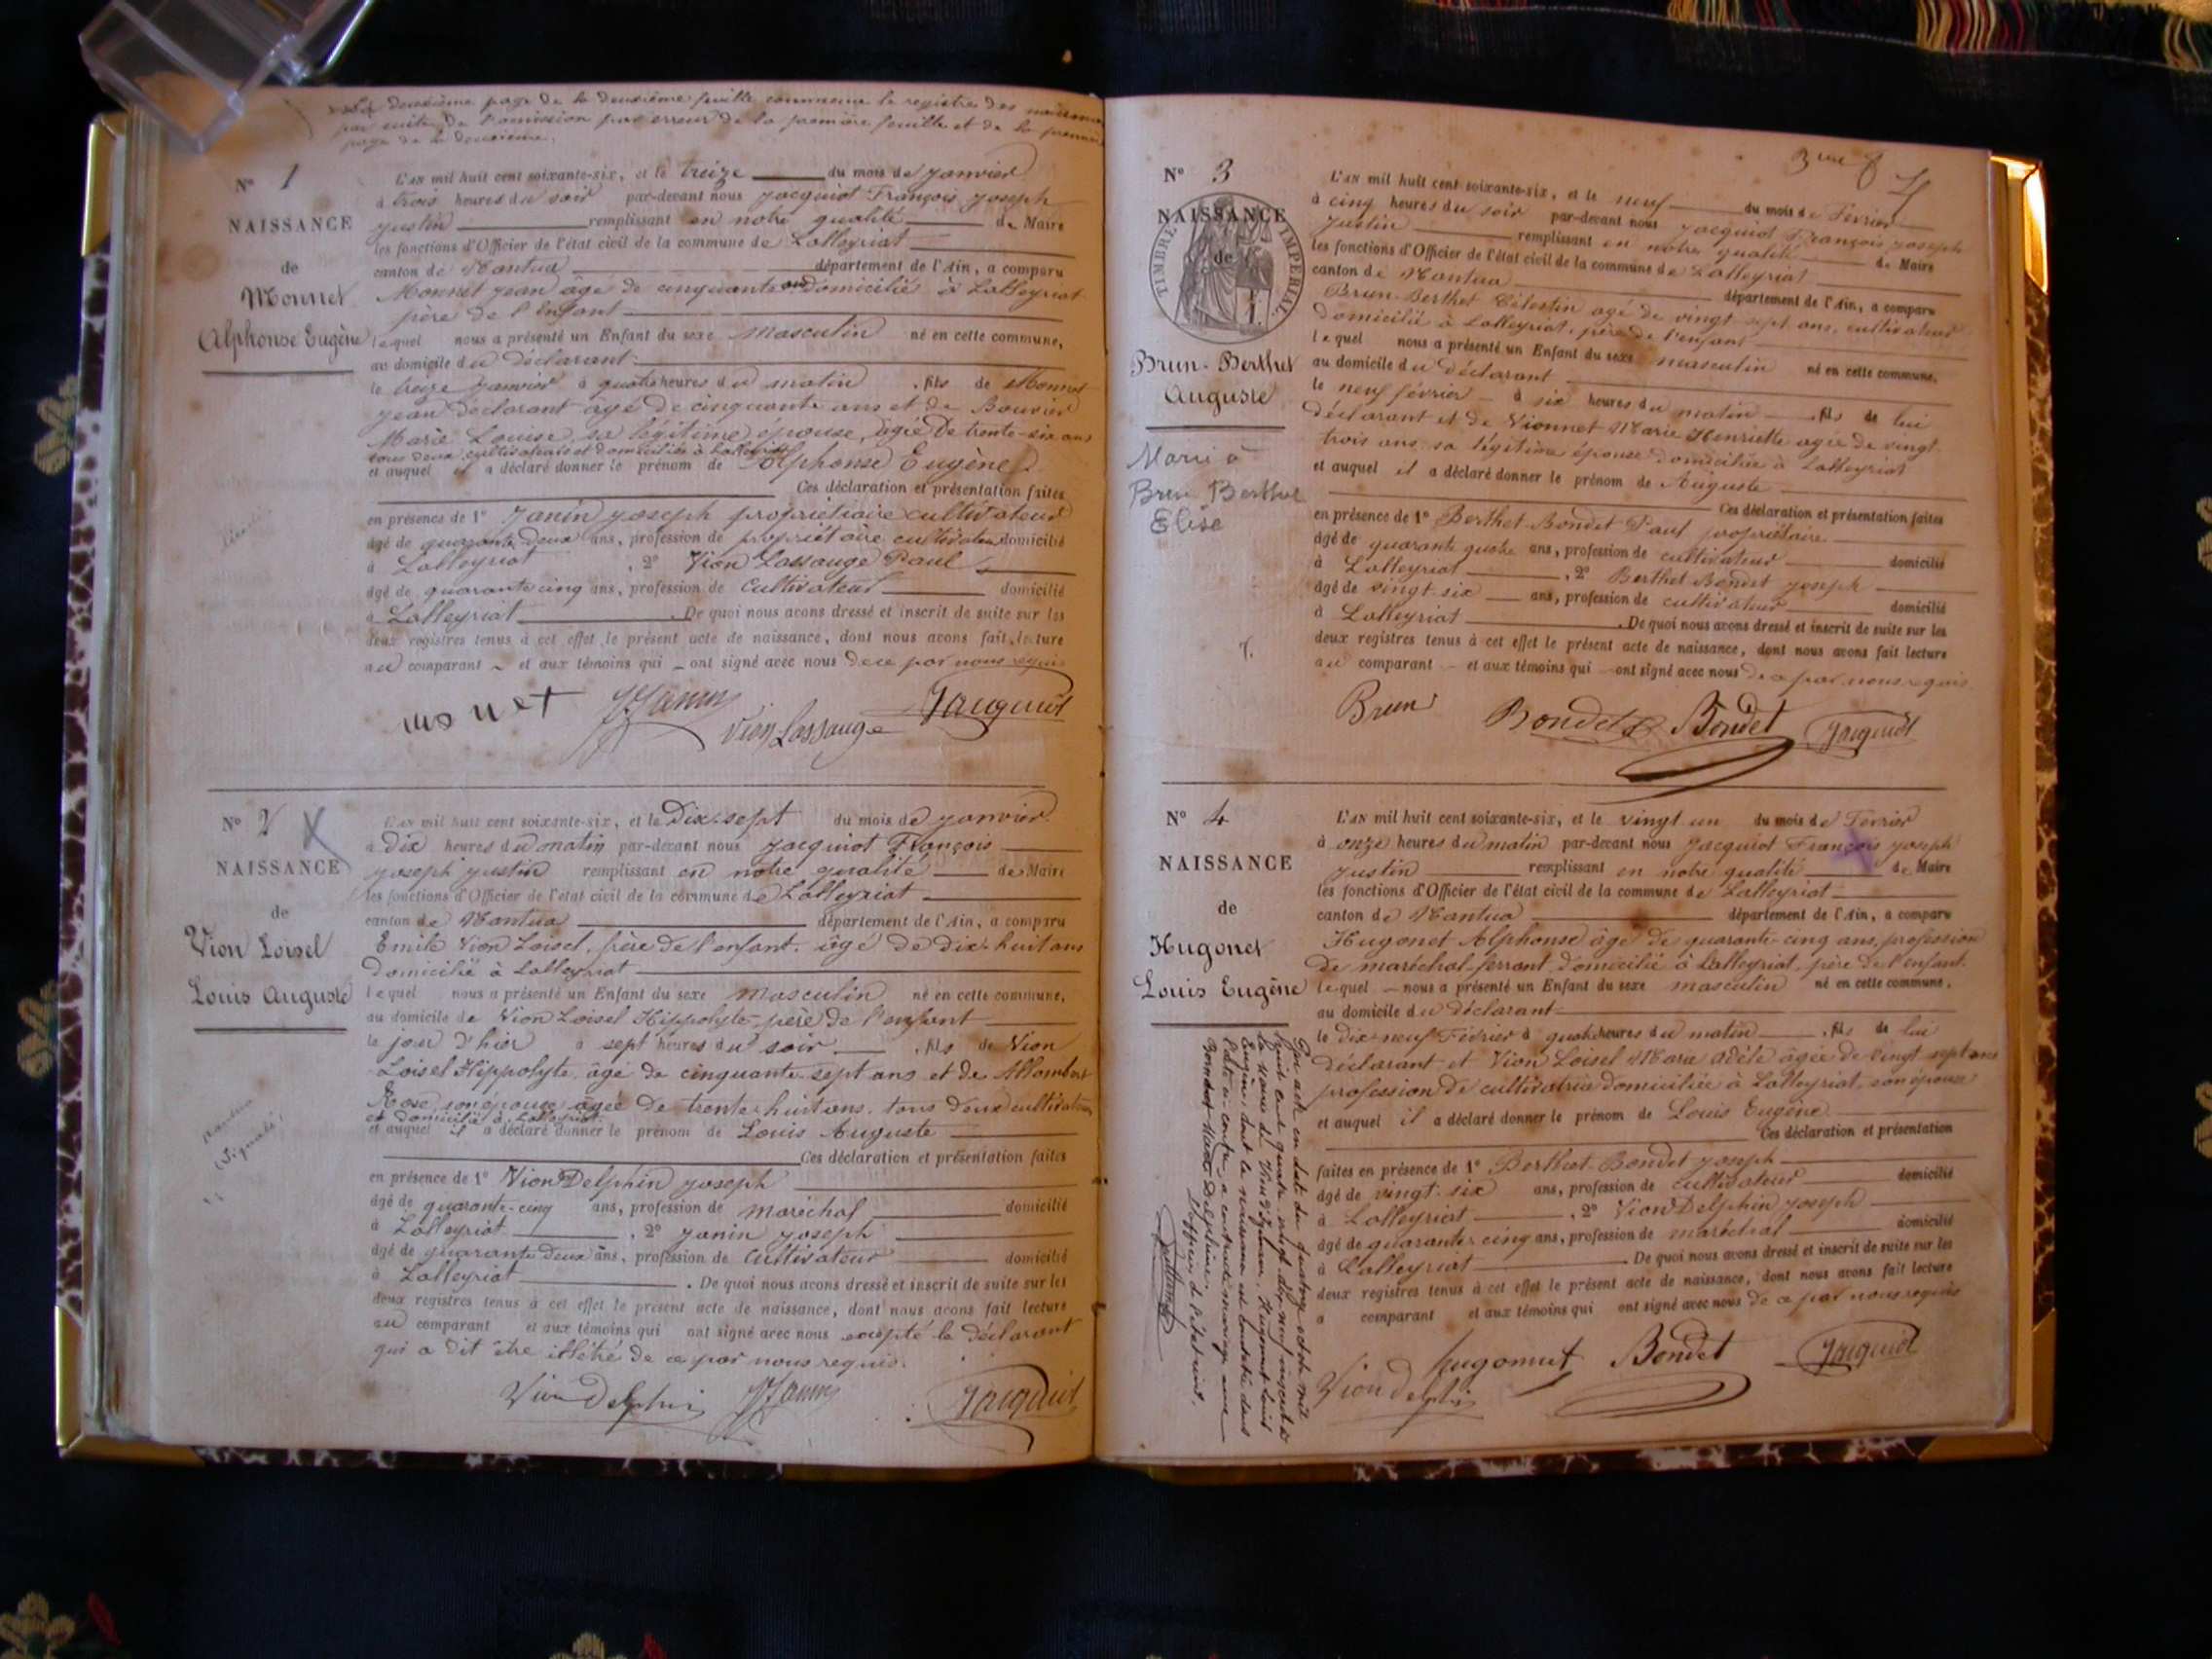 La deuxième page de la deuxième feuille commence le registre des naissances
par suite de l'omission par erreur de la première feuille et de la première
page de la deuxième.
N° 1
NAISSANCE
de
Monnet
Alphonse Eugène
L'AN mil huit cent soixante-six, et le treize du mois de janvier
à trois heures du soir par-devant nous Jacquiot François Joseph
Justin remplissant en notre qualité de Maire
les fonctions d'Officier de l'état civil de la commune de Lalleyriat
canton de Nantua département de l'Ain, a comparu
Monnet Jean âgé de cinquante ans domicilié à Lalleyriat
père de l'enfant
lequel nous a présenté un Enfant du sexe masculin né en cette commune,
au domicile du déclarant
le treize janvier à quatre heures du matin, fils de Monnet
Jean déclarant âgé de cinquante ans et de Bouvier
Marie Louise, sa légitime épouse, âgée de trente-six ans
tous deux cultivateurs et domiciliés à Lalleyriat
et auquel il a déclaré donner le prénom de Alphonse Eugène
Ces déclaration et présentation faites
en présence de 1° Janin Joseph propriétaire cultivateur
âgé de quarante deux ans, profession de propriétaire cultivateur domicilié
à Lalleyriat, 2° Vion Lassauge Paul
âgé de quarante cinq ans, profession de cultivateur domicilié
à Lalleyriat. De quoi nous avons dressé et inscrit de suite sur les
deux registres tenus à cet effet le présent acte de naissance, dont nous avons fait lecture
au comparant et aux témoins qui ont signé avec nous de ce par nous requis
monet JJanin Vion Lassauge Jacquiot
N° 2 X
NAISSANCE
de
Vion Loisel
Louis Auguste
L'AN mil huit cent soixante-six, et le dix-sept du mois de janvier
à dix heures du matin par-devant nous Jacquiot François
Joseph Justin remplissant en notre qualité de Maire
les fonctions d'Officier de l'état civil de la commune de Lalleyriat
canton de Nantua département de l'Ain, a comparu
Emile Vion Loisel, frère de l'enfant âgé de dix-huit ans
domicilié à Lalleyriat
lequel nous a présenté un Enfant du sexe masculin né en cette commune,
au domicile de Vion Loisel Hippolyte père de l'enfant
le jour d'hier à sept heures du soir, fils de Vion
Loisel Hippolyte âgé de cinquante sept ans et de Allombert
Rose, son épouse âgée de trente huit ans tous deux cultivateurs
et domiciliés à Lalleyriat
et auquel il a déclaré donner le prénom de Louis Auguste
Ces déclaration et présentation faites
en présence de 1° Vion Delphin Joseph
âgé de quarante-cinq ans, profession de maréchal domicilié
à Lalleyriat, 2° Janin Joseph
âgé de quarante deux ans, profession de cultivateur domicilié
à Lalleyriat. De quoi nous avons dressé et inscrit de suite sur les
deux registres tenus à cet effet le présent acte de naissance, dont nous avons fait lecture
au comparant et aux témoins qui ont signé avec nous excepté le déclarant
qui a dit être illétré de ce par nous requis.
Vion delphin JJanin Jacquiot
4
N° 3
NAISSANCE
de
TIMBRE IMPERIAL
Brun-Berthet
Auguste
Marié à
Brun Berthet
Elise
L'AN mil huit cent soixante-six, et le neuf du mois de Février
à cinq heures du soir par-devant nous Jacquiot François Joseph
Justin remplissant en notre qualité de Maire
les fonctions d'Officier de l'état civil de la commune de Lalleyriat
canton de Nantua département de l'Ain, a comparu
Brun-Berthet Célestin agé de vingt sept ans, cultivateur
domicilié à Lalleyriat, père de l'enfant
lequel nous a présenté un Enfant du sexe masculin né en cette commune,
au domicile du déclarant
le neuf février à six heures du matin, fils de lui
déclarant et de Vionnet Marie Henriette agée de vingt
trois ans, sa légitime épouse domiciliée à Lalleyriat
et auquel il a déclaré donner le prénom de Auguste
Ces déclaration et présentation faites
en présence de 1° Berthet-Bondet Paul propriétaire
âgé de quarante quatre ans, profession de cultivateur domicilié
à Lalleyriat, 2° Berthet Bondet Joseph
âgé de vingt-six ans, profession de cultivateur domicilié
à Lalleyriat. De quoi nous avons dressé et inscrit de suite sur les
deux registres tenus à cet effet le présent acte de naissance, dont nous avons fait lecture
au comparant et aux témoins qui ont signé avec nous de ce par nous requis
Brun Bondet Bondet Jacquiot
N° 4
NAISSANCE
de
Hugonet
Louis Eugène
L'AN mil huit cent soixante-six, et le vingt un du mois de Février
à onze heures du matin par-devant nous Jacquiot François Joseph
Justin remplissant en notre qualité de Maire
les fonctions d'Officier de l'état civil de la commune de Lalleyriat
canton de Nantua département de l'Ain, a comparu
Hugonet Alphonse âgé de quarante-cinq ans, profession
de maréchal-ferrant domicilié à Lalleyriat, père de l'enfant
lequel nous a présenté un Enfant du sexe masculin né en cette commune,
au domicile du déclarant
le dix-neuf Février à quatre heures du matin, fils de lui
déclarant et Vion Loisel Marie Adèle âgée de vingt sept ans
profession de cultivatrice domiciliée à Lalleyriat, son épouse
et auquel il a déclaré donner le prénom de Louis Eugène
Ces déclaration et présentation
faites en présence de 1° Berthet-Bondet Joseph
âgé de vingt-six ans, profession de cultivateur domicilié
à Lalleyriat, 2° Vion Delphin Joseph
âgé de quarante cinq ans, profession de maréchal domicilié
à Lalleyriat. De quoi nous avons dressé et inscrit de suite sur les
deux registres tenus à cet effet le présent acte de naissance, dont nous avons fait lecture
a comparant et aux témoins qui ont signé avec nous de ce par nous requis
Vion delphin hugonnet Bondet Jacquiot
Par acte en date du quatorze octobre mil
huit cent quatre vingt dix neuf
Hugonnet Louis
Eugène, dont la naissance est constatée dans
l'acte ci-contre, a contracté mariage avec
Delphine.
L'officier de l'état civil,